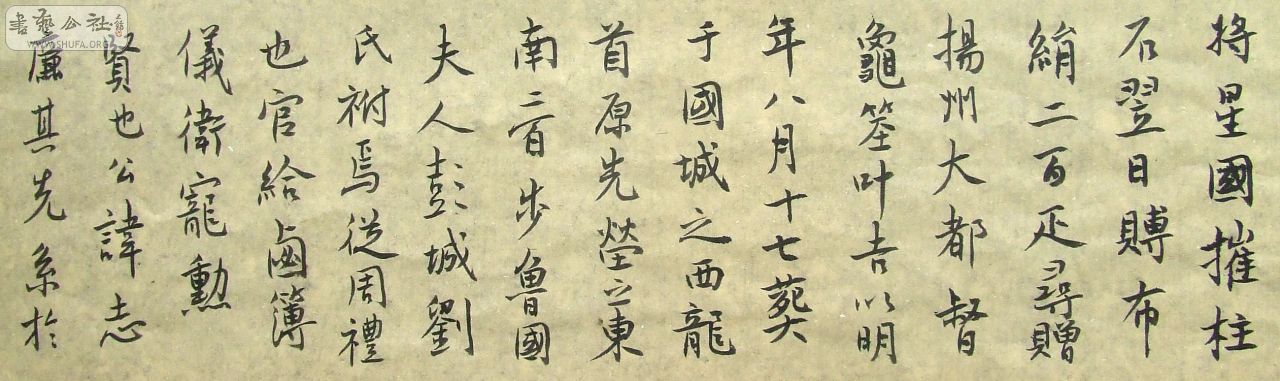 將星國摧柱
石翌日賻布
絹二百疋尋贈
揚州大都督
龜筮叶吉以明
年八月十七葬
于國城之西龍
首原先塋之東
南二百步魯國
夫人彭城劉
氏祔焉從周禮
也官給鹵簿
儀衛寵勳
賢也公諱志
廉其先系於
書藝公社
WWW.SHUFA.ORG